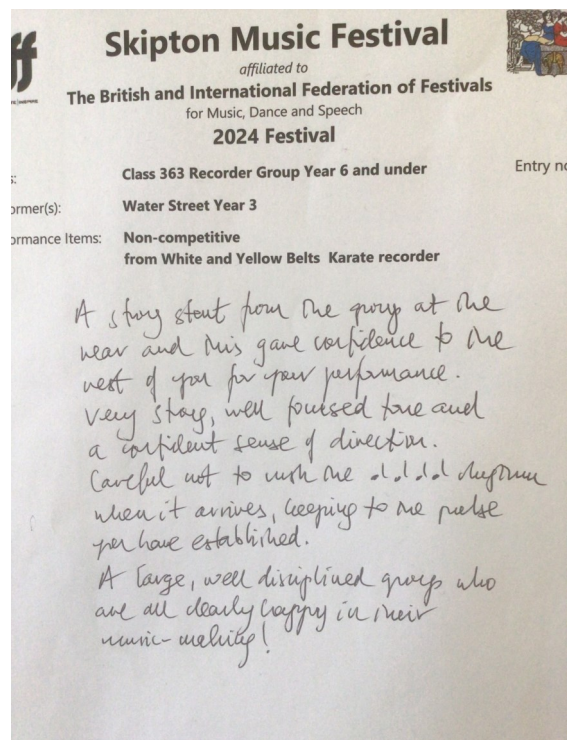 Skipton Music Festival
affiliated to
The British and International Federation of Festivals
for Music, Dance and Speech
2024 Festival
s:
Class 363 Recorder Group Year 6 and under
Entry no
ormer(s):
Water Street Year 3
ormance Items:
Non-competitive
from White and Yellow Belts Karate recorder
A strong start from the group at the
rear and this gave confidence to the
rest of you for your performance.
Very strong, well focused tone and
a confident sense of direction.
Careful not to rush the rhythm
when it arrives, keeping to the pulse
you have established.
A large, well disciplined group who
are all clearly happy in their
music-making!